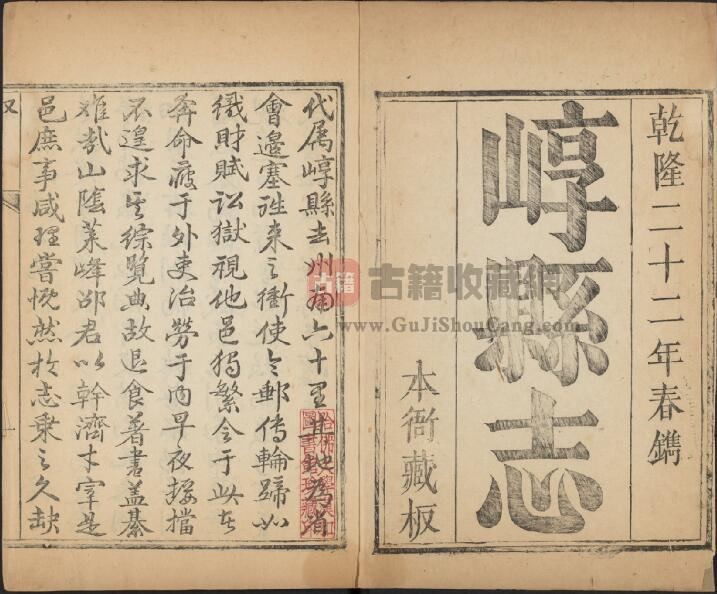 乾隆二十二年春鐫
崞縣志
本衙藏板
代属崞縣去州南六十里其地為省
會邉塞往来之衝使令郵傳輪蹄如
織財賦訟獄視他邑獨繁令于此者
奔命疲于外吏治勞于内早夜摒擋
不遑求其綜覽典故退食著書盖綦
难㢤山陰莱峰邵君以幹濟才宰是
邑庶事咸理嘗慨然於志乗之久缺
叙
一
古籍
古籍收藏網
www.GuJiShouCang.com